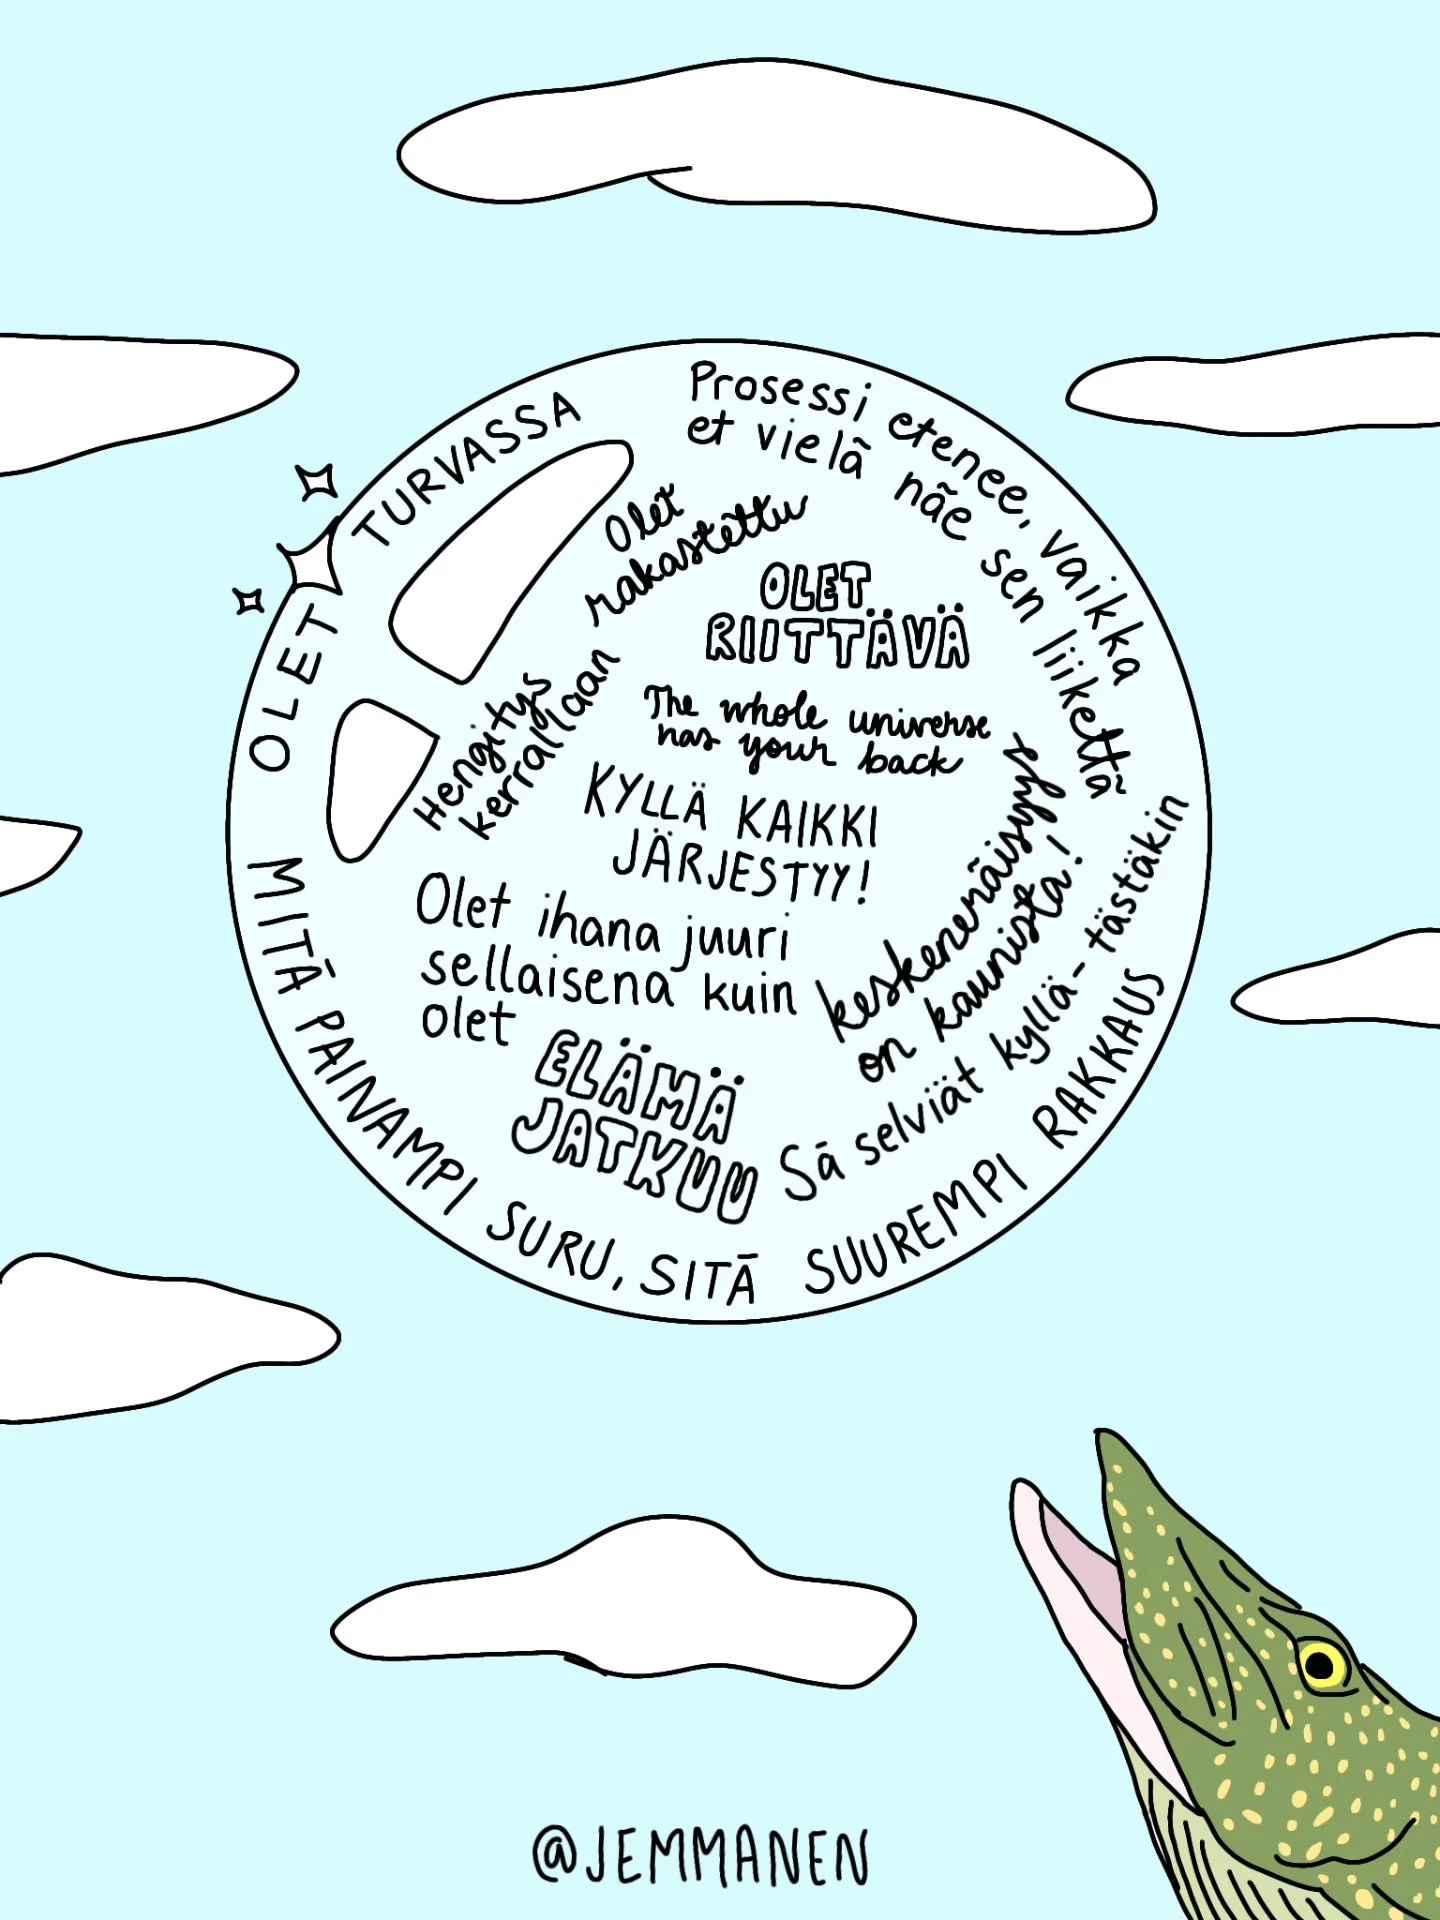 OLET TURVASSA
Prosessi etenee, vaikka
et vielä näe sen liikettä
Olet
rakastettu
OLET
RIITTÄVÄ
Hengitys
kerrallaan
The whole universe
has your back
KYLLÄ KAIKKI
JÄRJESTYY!
Olet ihana juuri
sellaisena kuin
olet
keskeneräisyys
on kaunista!
ELÄMÄ
JATKUU
Sä selviät kyllä-tästäkin
MITÄ PAINAMPI SURU, SITÄ SUUREMPI RAKKAUS
@JEMMANEN